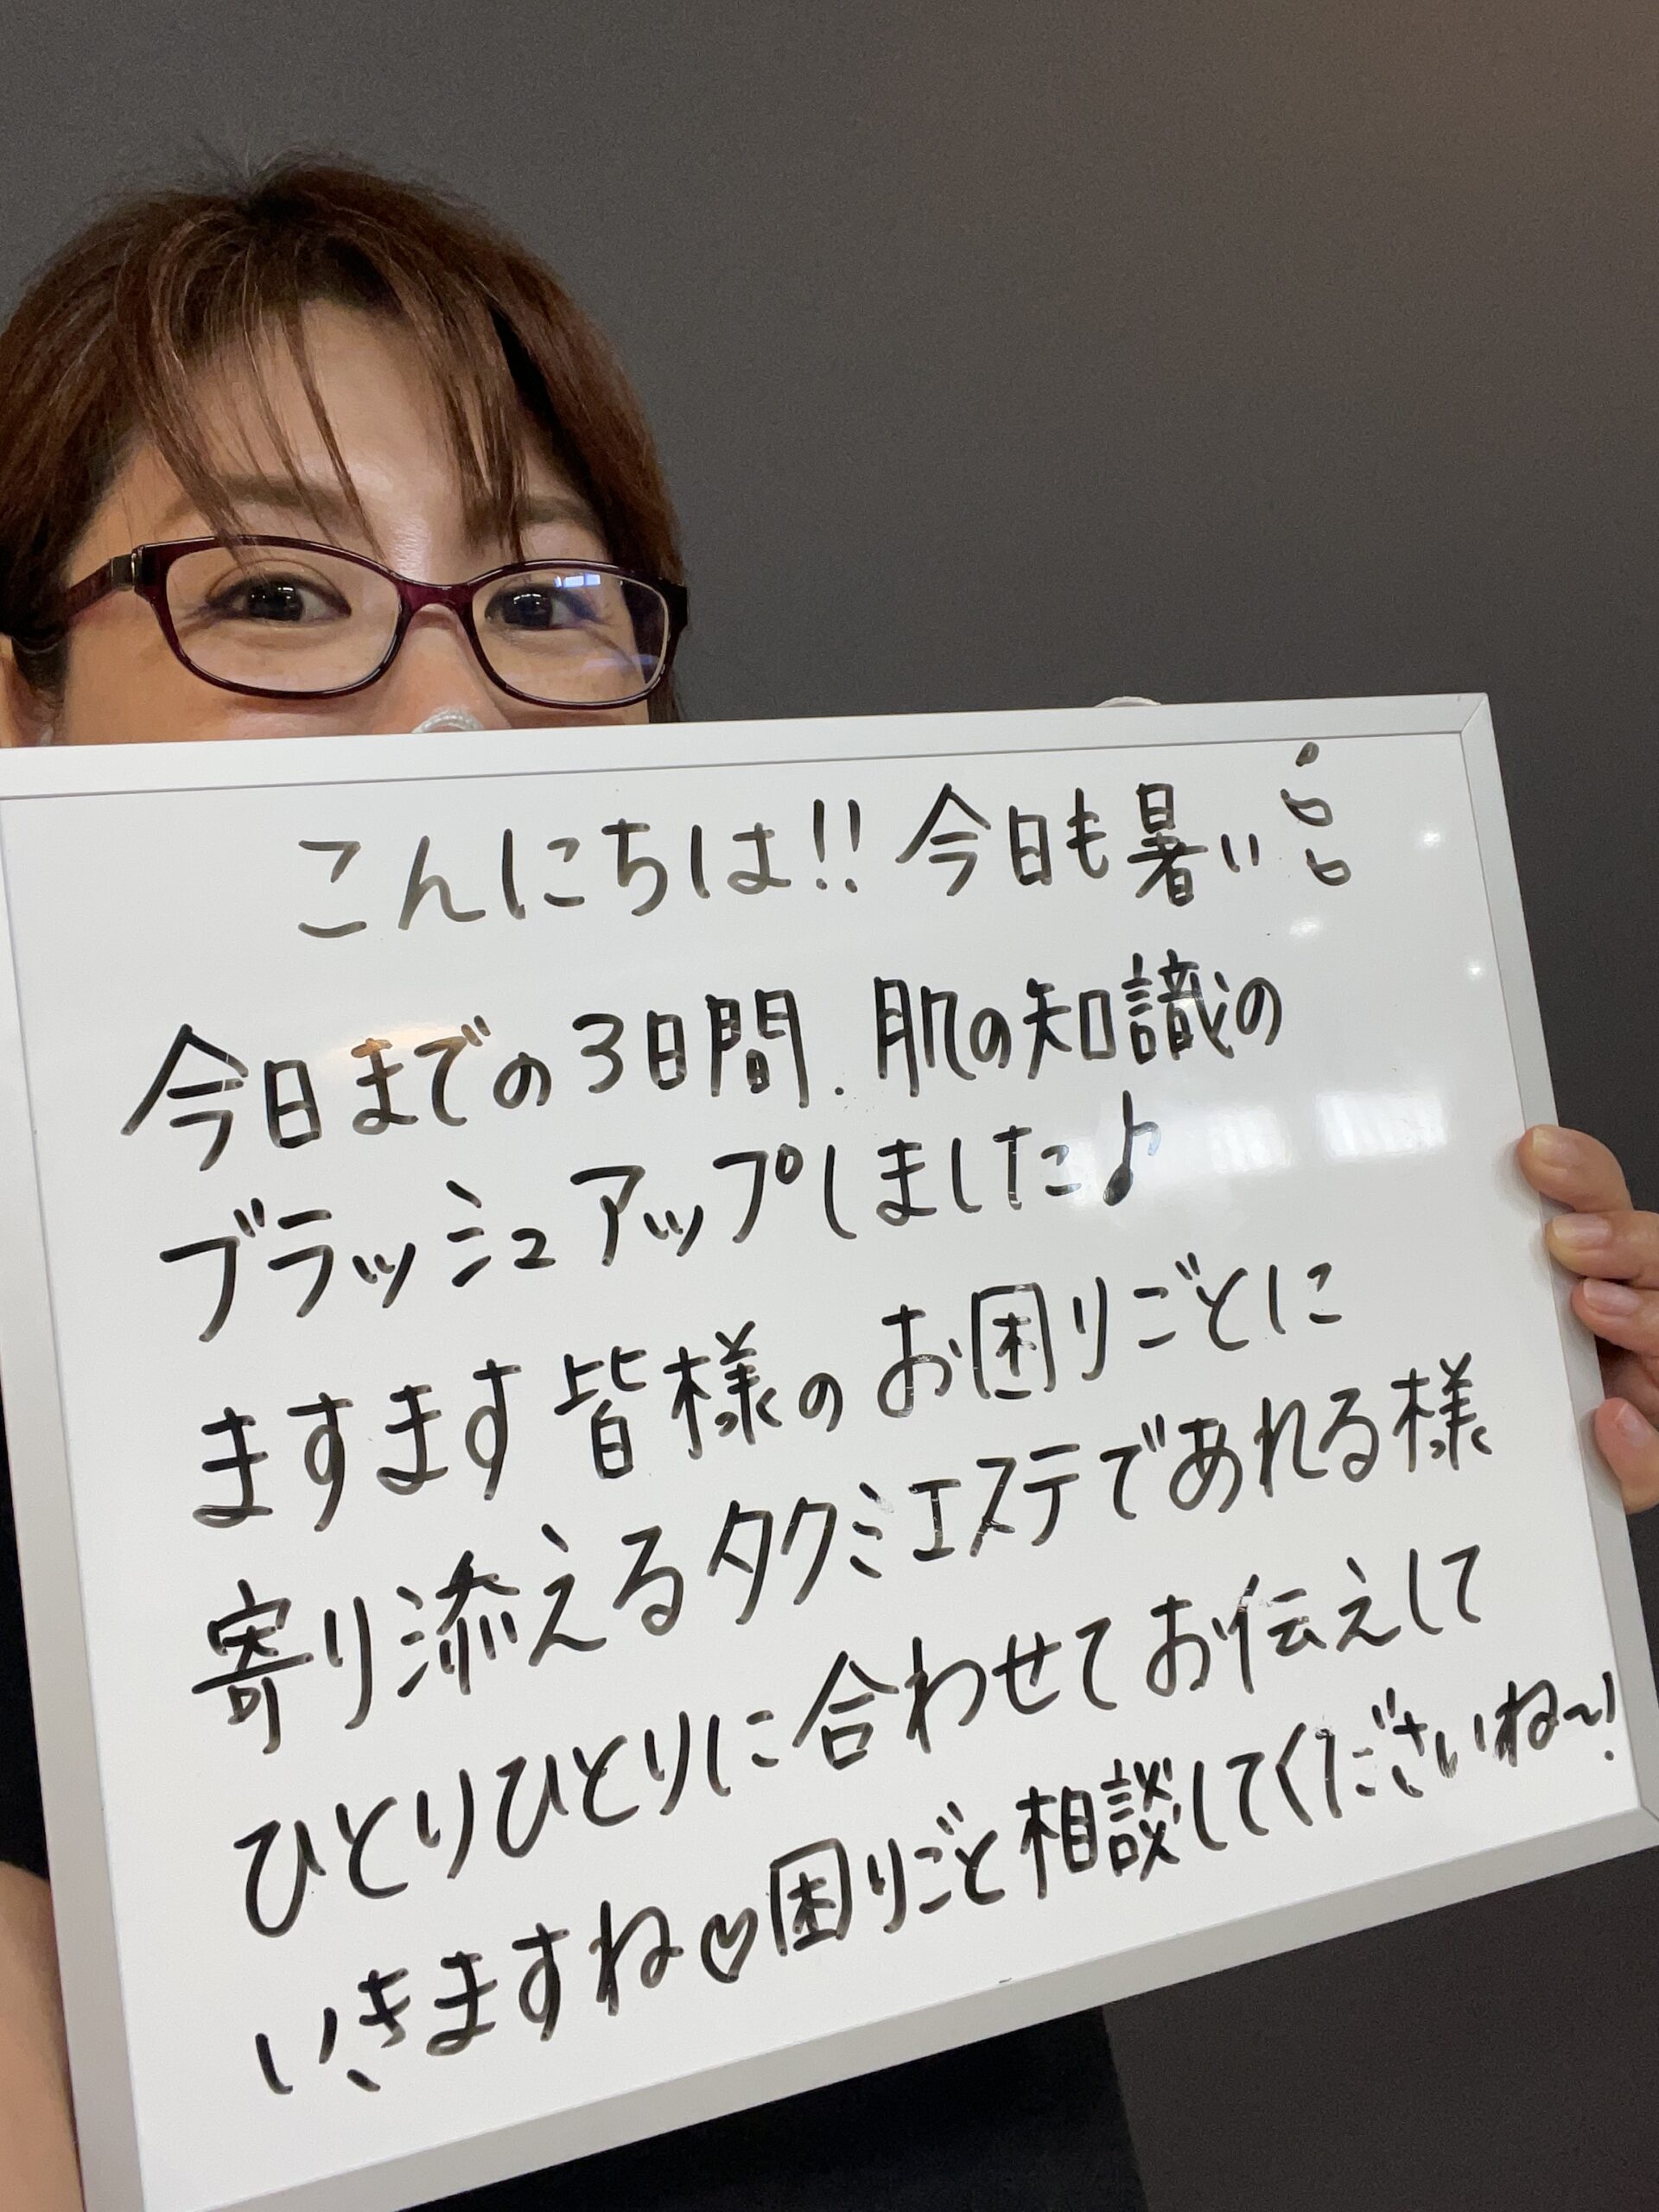 こんにちは!! 今日も暑い
今日までの3日間. 肌の知識の
ブラッシュアップしました♪
ますます皆様のお困りごとに
寄り添えるタクミエステであれる様
ひとりひとりに合わせてお伝えして
いきますね♡困りごと相談してくださいね〜!